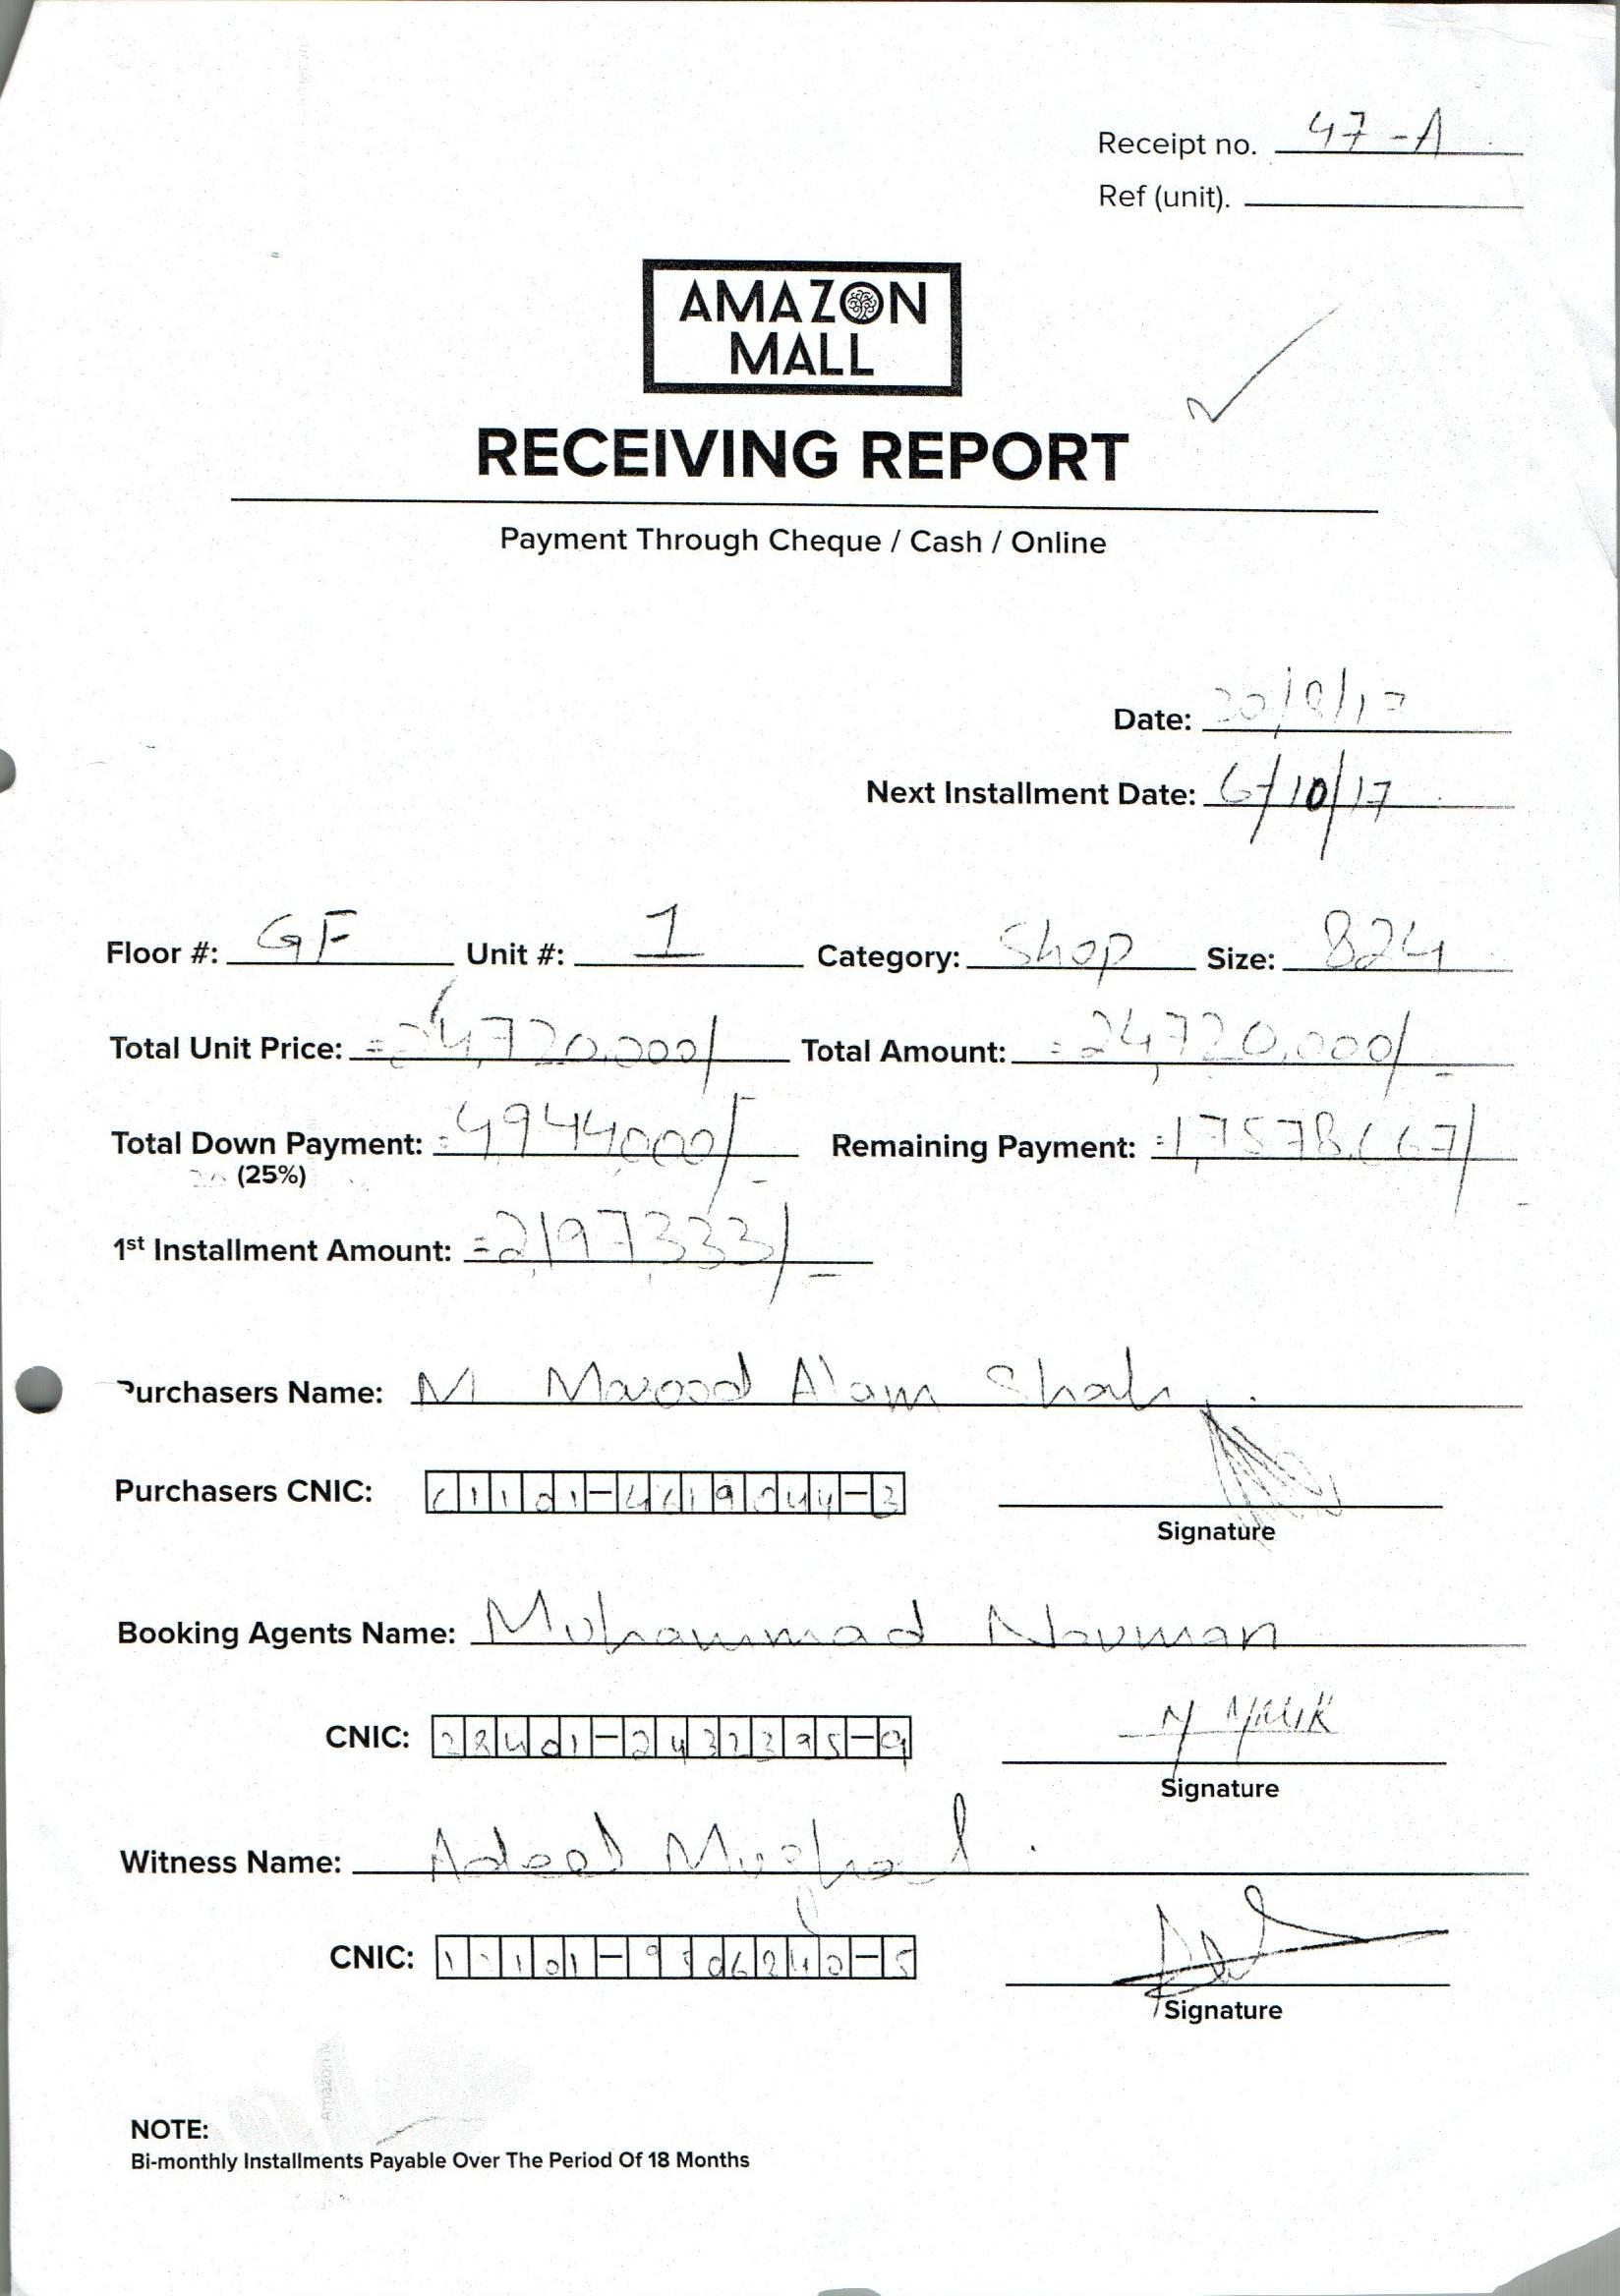 Receipt no. 47-A
Ref (unit).
AMAZON
MALL
RECEIVING REPORT
Payment Through Cheque / Cash / Online
Date: 30/8/17
Next Installment Date: 6/10/17
Floor #: GF Unit #: 1 Category: Shop Size: 824
Total Unit Price: =24,720,000/ Total Amount: =24,720,000/-
Total Down Payment: =4944000/- Remaining Payment: =17578,667/-
(25%)
1st Installment Amount: =2,197,333/-
Purchasers Name: M Masood Alam Shah
Purchasers CNIC: 61101-4619044-3
Signature
Booking Agents Name: Muhammad Nouman
CNIC: 38401-2432395-9
M MALIK
Signature
Witness Name: Adeel Mughal
CNIC:
Signature
NOTE:
Bi-monthly Installments Payable Over The Period Of 18 Months